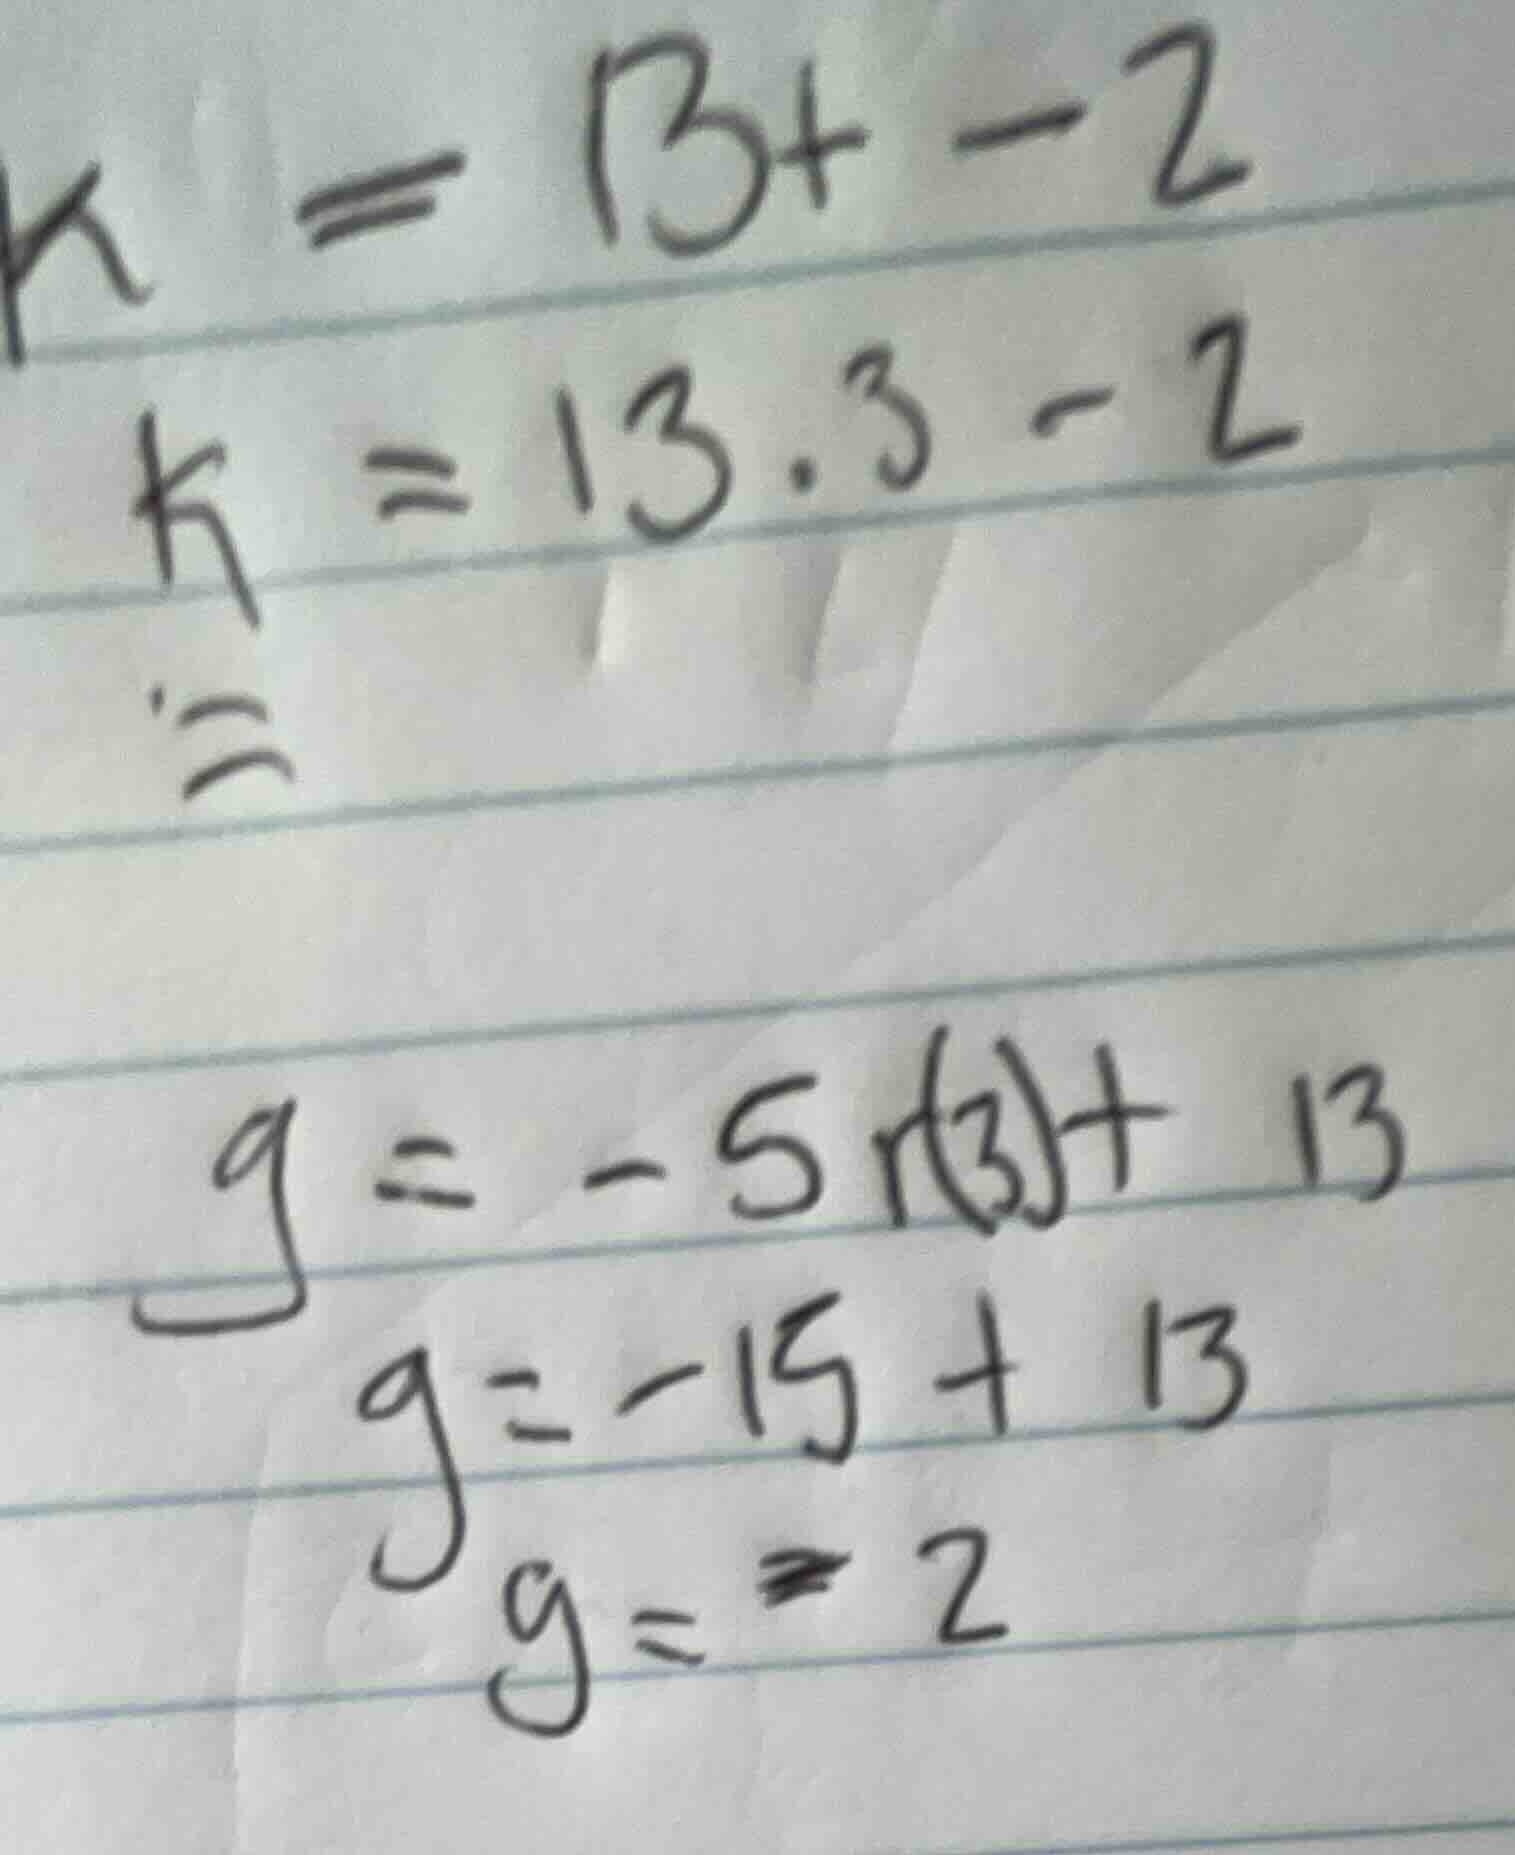 K = 13t - 2
K = 13.3 - 2
=
g = - 5r(3)+ 13
g = -15 + 13
g = - 2